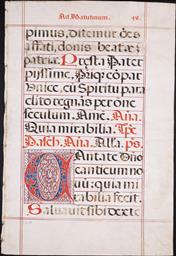 Ad Matutinum. 49.
pimus, ditemur ōēs
affati, donis beatæ
patriæ. Presta Pater
piissime, Patriq; cōpar
Vnice, cū Spiritu para
clito regnās per ōne
seculum. Amē. Aña.
Quia mirabilia. Tpe
Pasch. Aña. Alla. ps.
Cantate Dño
canticum no
uū: quia mi
rabilia fecit.
Saluauit sibi dexte